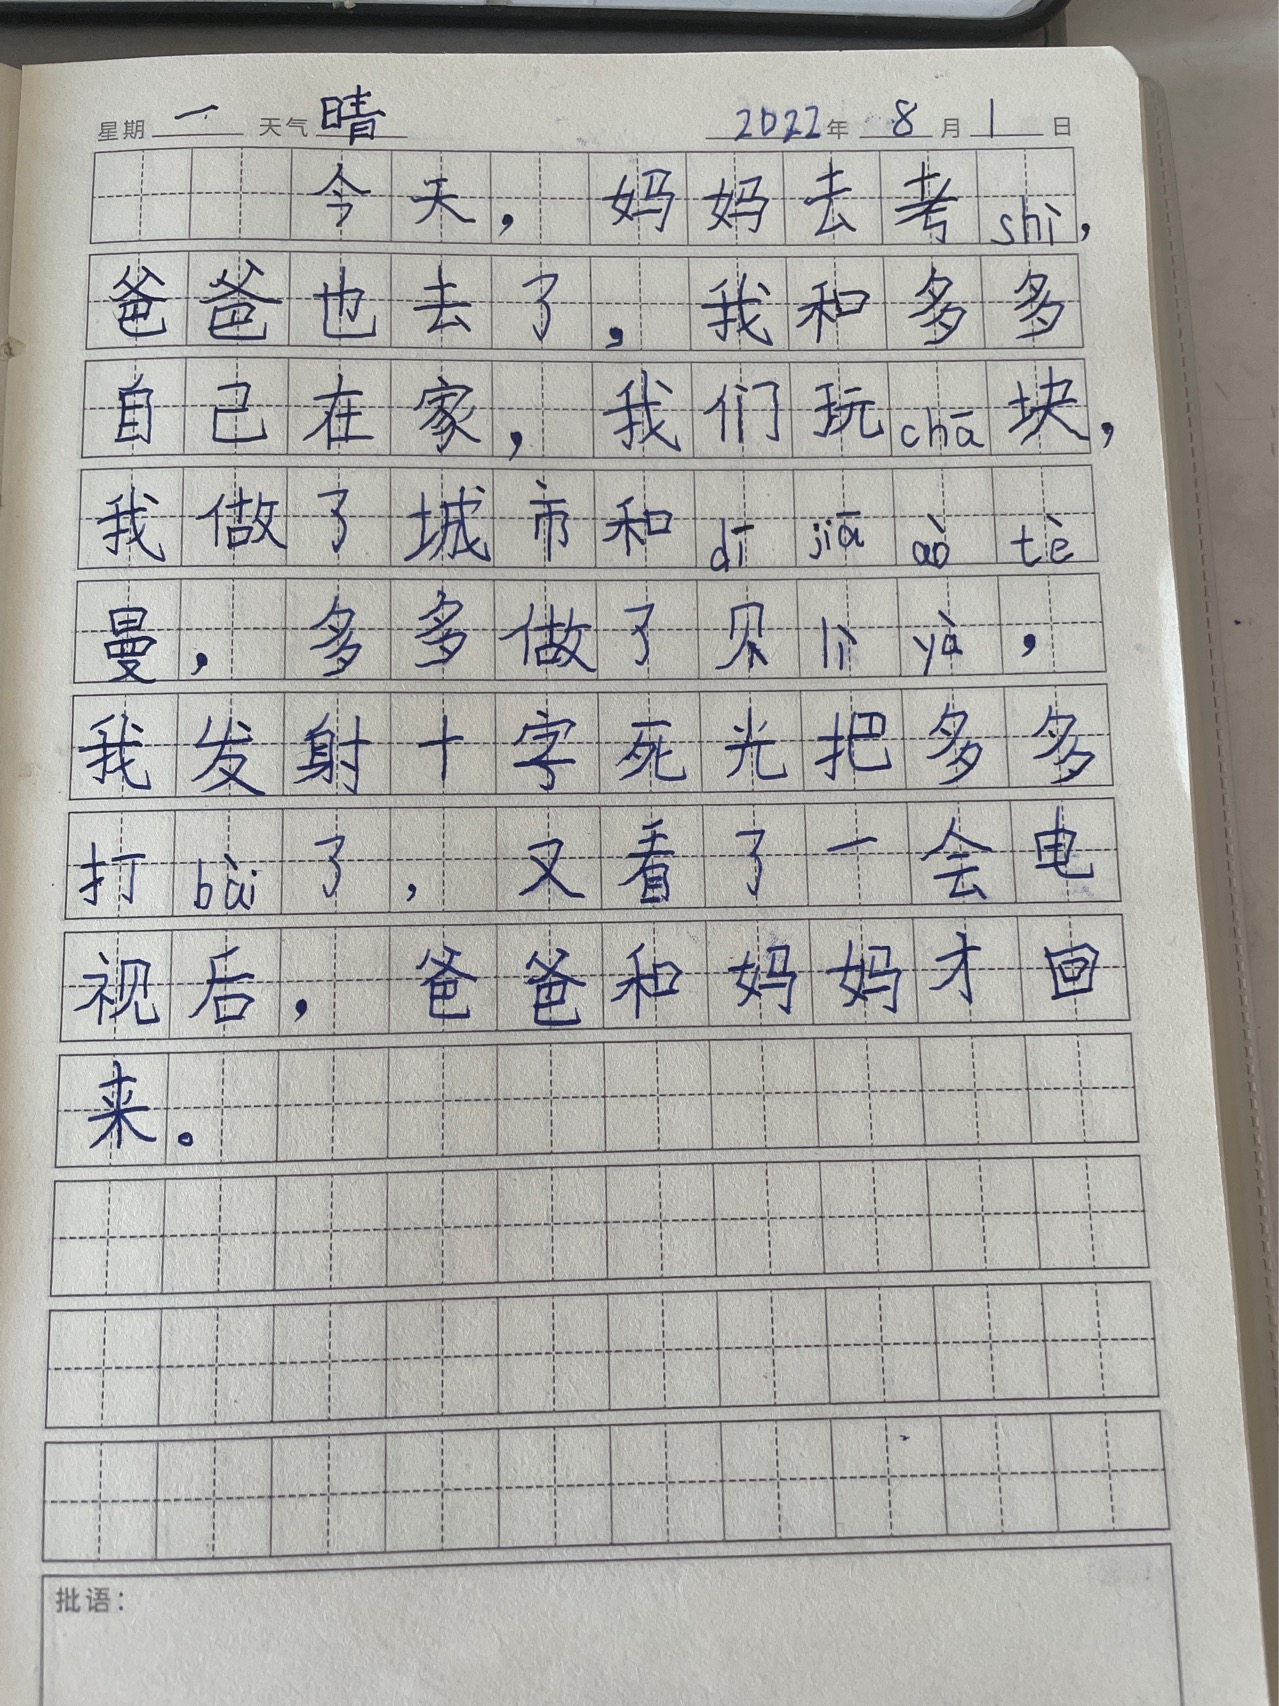 星期 一 天气 晴 2022年 8月 1日
今天，妈妈去考shì，
爸爸也去了，我和多多
自己在家，我们玩chā块，
我做了城市和dī jiā ào tè
曼，多多做了贝lì yà，
我发射十字死光把多多
打bài了，又看了一会电
视后，爸爸和妈妈才回
来。
批语：